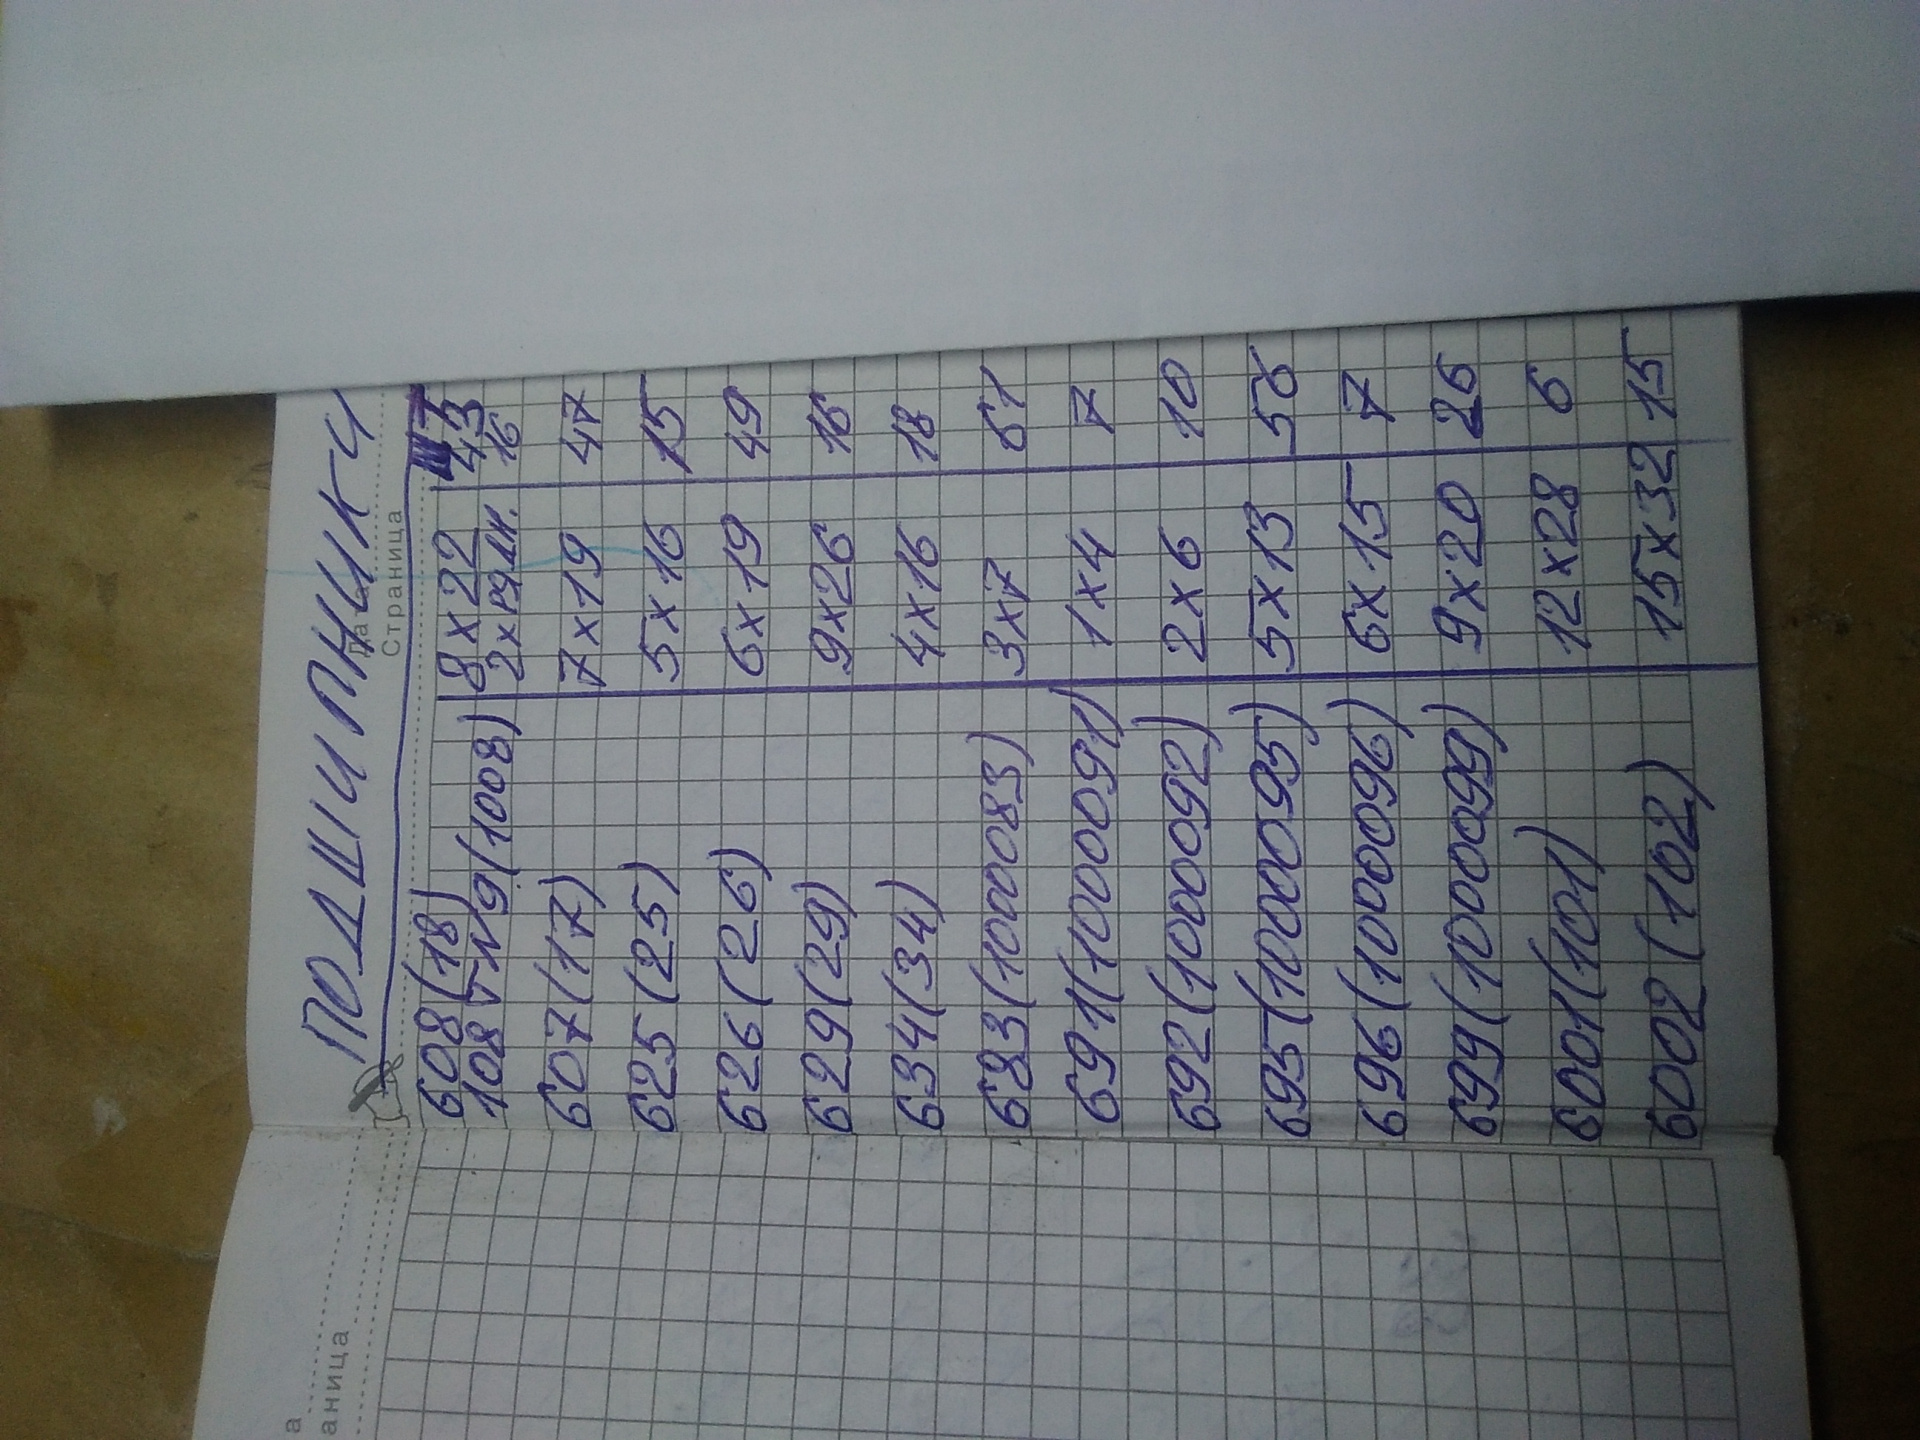 ПОДШИПНИКИ
Дата
Страница
608 (18) 8 x 22 43
108 TN9 (1008) 2x РЯДН. 16
607 (17) 7 x 19 47
625 (25) 5 x 16 15
626 (26) 6 x 19 49
629 (29) 9 x 26 16
634 (34) 4 x 16 18
683 (1000083) 3 x 7 61
691 (1000091) 1 x 4 7
692 (1000092) 2 x 6 10
695 (1000095) 5 x 13 56
696 (1000096) 6 x 15 7
699 (1000099) 9 x 20 26
6001 (101) 12 x 28 6
6002 (102) 15 x 32 15
а
аница